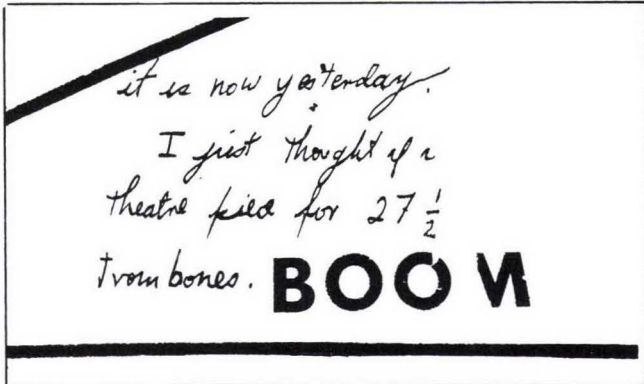 it is now yesterday.
I just thought of a
theatre piece for 27 1/2
trombones. BOOM